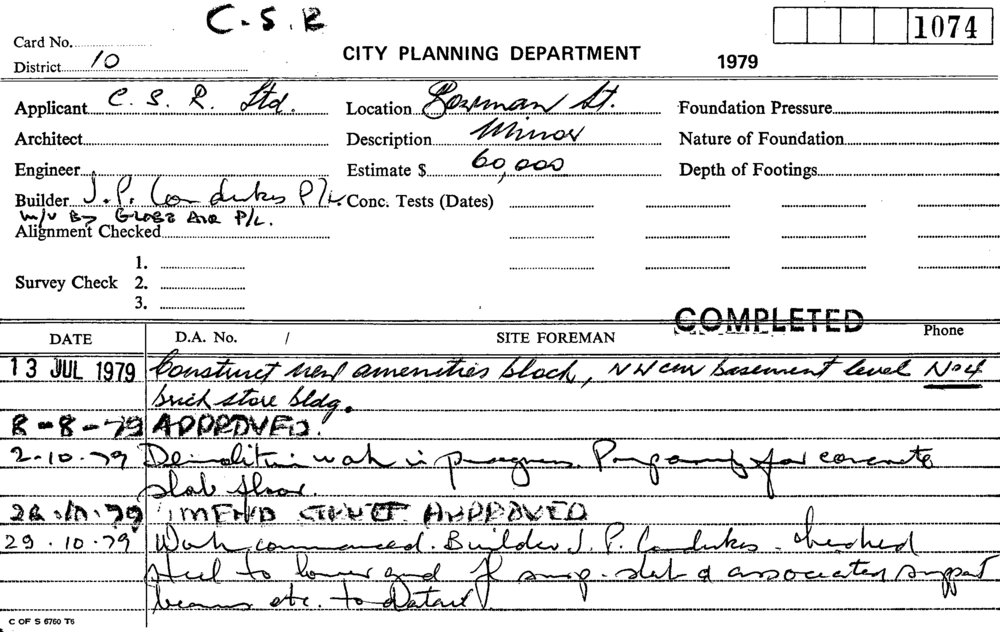 C.S.R
1074
Card No.
CITY PLANNING DEPARTMENT
1979
District 10
Applicant C. S. R. Ltd. Location Bowman St. Foundation Pressure
Architect Description Minor Nature of Foundation
Engineer Estimate $ 60,000 Depth of Footings
Builder J.P. P/L Conc. Tests (Dates)
M/V By GLOBE AIR P/L.
Alignment Checked
1.
Survey Check 2.
3.
COMPLETED
DATE D.A. No. / SITE FOREMAN Phone
13 JUL 1979 Construct new amenities block, NW cnr basement level No4
brick store bldg.
8-8-79 APPROVED.
2.10.79 Demolition work in progress. for concrete
slab floor.
26.10.79 APPROVED
29.10.79 Work commenced. Builder J. P. checked
steel to lower end of susp. slab & associated support
beams etc. to Detail.
C OF S 6760 T6